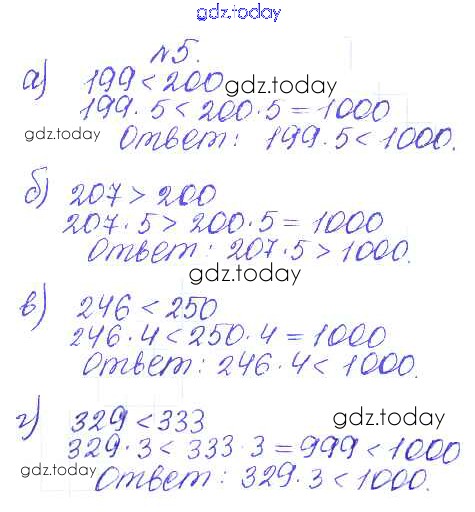 gdz.today
№5.
а) 199 < 200 gdz.today
199 · 5 < 200 · 5 = 1000
gdz.today Ответ: 199 · 5 < 1000.
б) 207 > 200
207 · 5 > 200 · 5 = 1000
Ответ: 207 · 5 > 1000.
gdz.today
в) 246 < 250
246 · 4 < 250 · 4 = 1000
Ответ: 246 · 4 < 1000.
г) 329 < 333 gdz.today
329 · 3 < 333 · 3 = 999 < 1000
gdz.today Ответ: 329 · 3 < 1000.